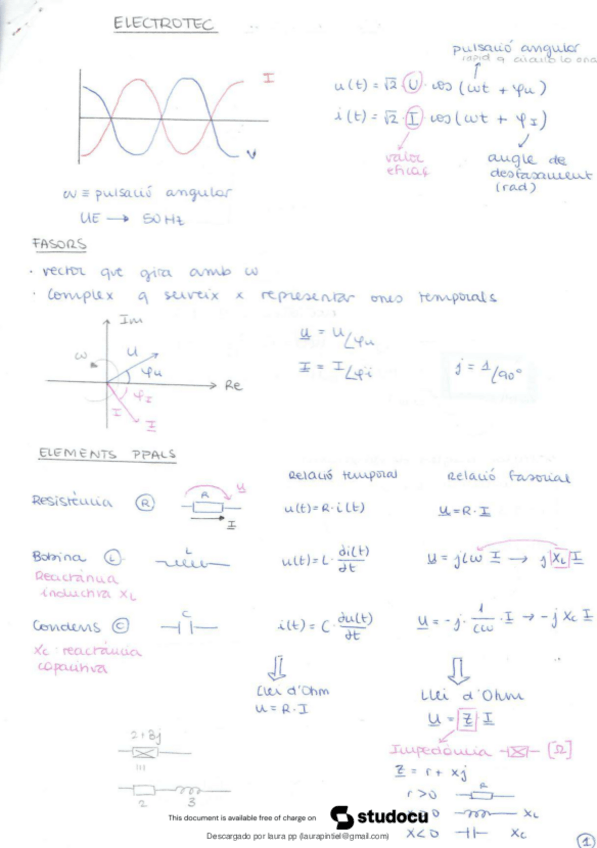 ELECTROTEC
pulsació angular
I
u(t) = √2 · U · cos (ωt + φu)
i(t) = √2 · I · cos (ωt + φI)
V
valor
eficaç
angle de
desfasament
(rad)
ω ≡ pulsació angular
UE → 50 Hz
FASORS
· vector que gira amb ω
· complex q serveix x representar ones temporals
Im
ω
U
φu
Re
φI
I
I
U = U/φu
I = I/φi
j = 1/90°
ELEMENTS PPALS
Relació temporal
Relació Fasorial
Resistència R
R
u
I
u(t) = R · i(t)
U = R · I
Bobina L
L
u(t) = L · di(t)/dt
U = jLω I → j XL I
Reactància
inductiva XL
Condens C
C
i(t) = C · du(t)/dt
U = -j · 1/Cω · I → -j XC I
XC: reactància
capacitiva
Llei d'Ohm
U = R · I
Llei d'Ohm
U = Z I
2+3j
2
3
Impedància [Ω]
Z = r + xj
r>0
R
XL
x<0
XC
This document is available free of charge on
studocu
Descargado por laura pp (laurapintiel@gmail.com)
1